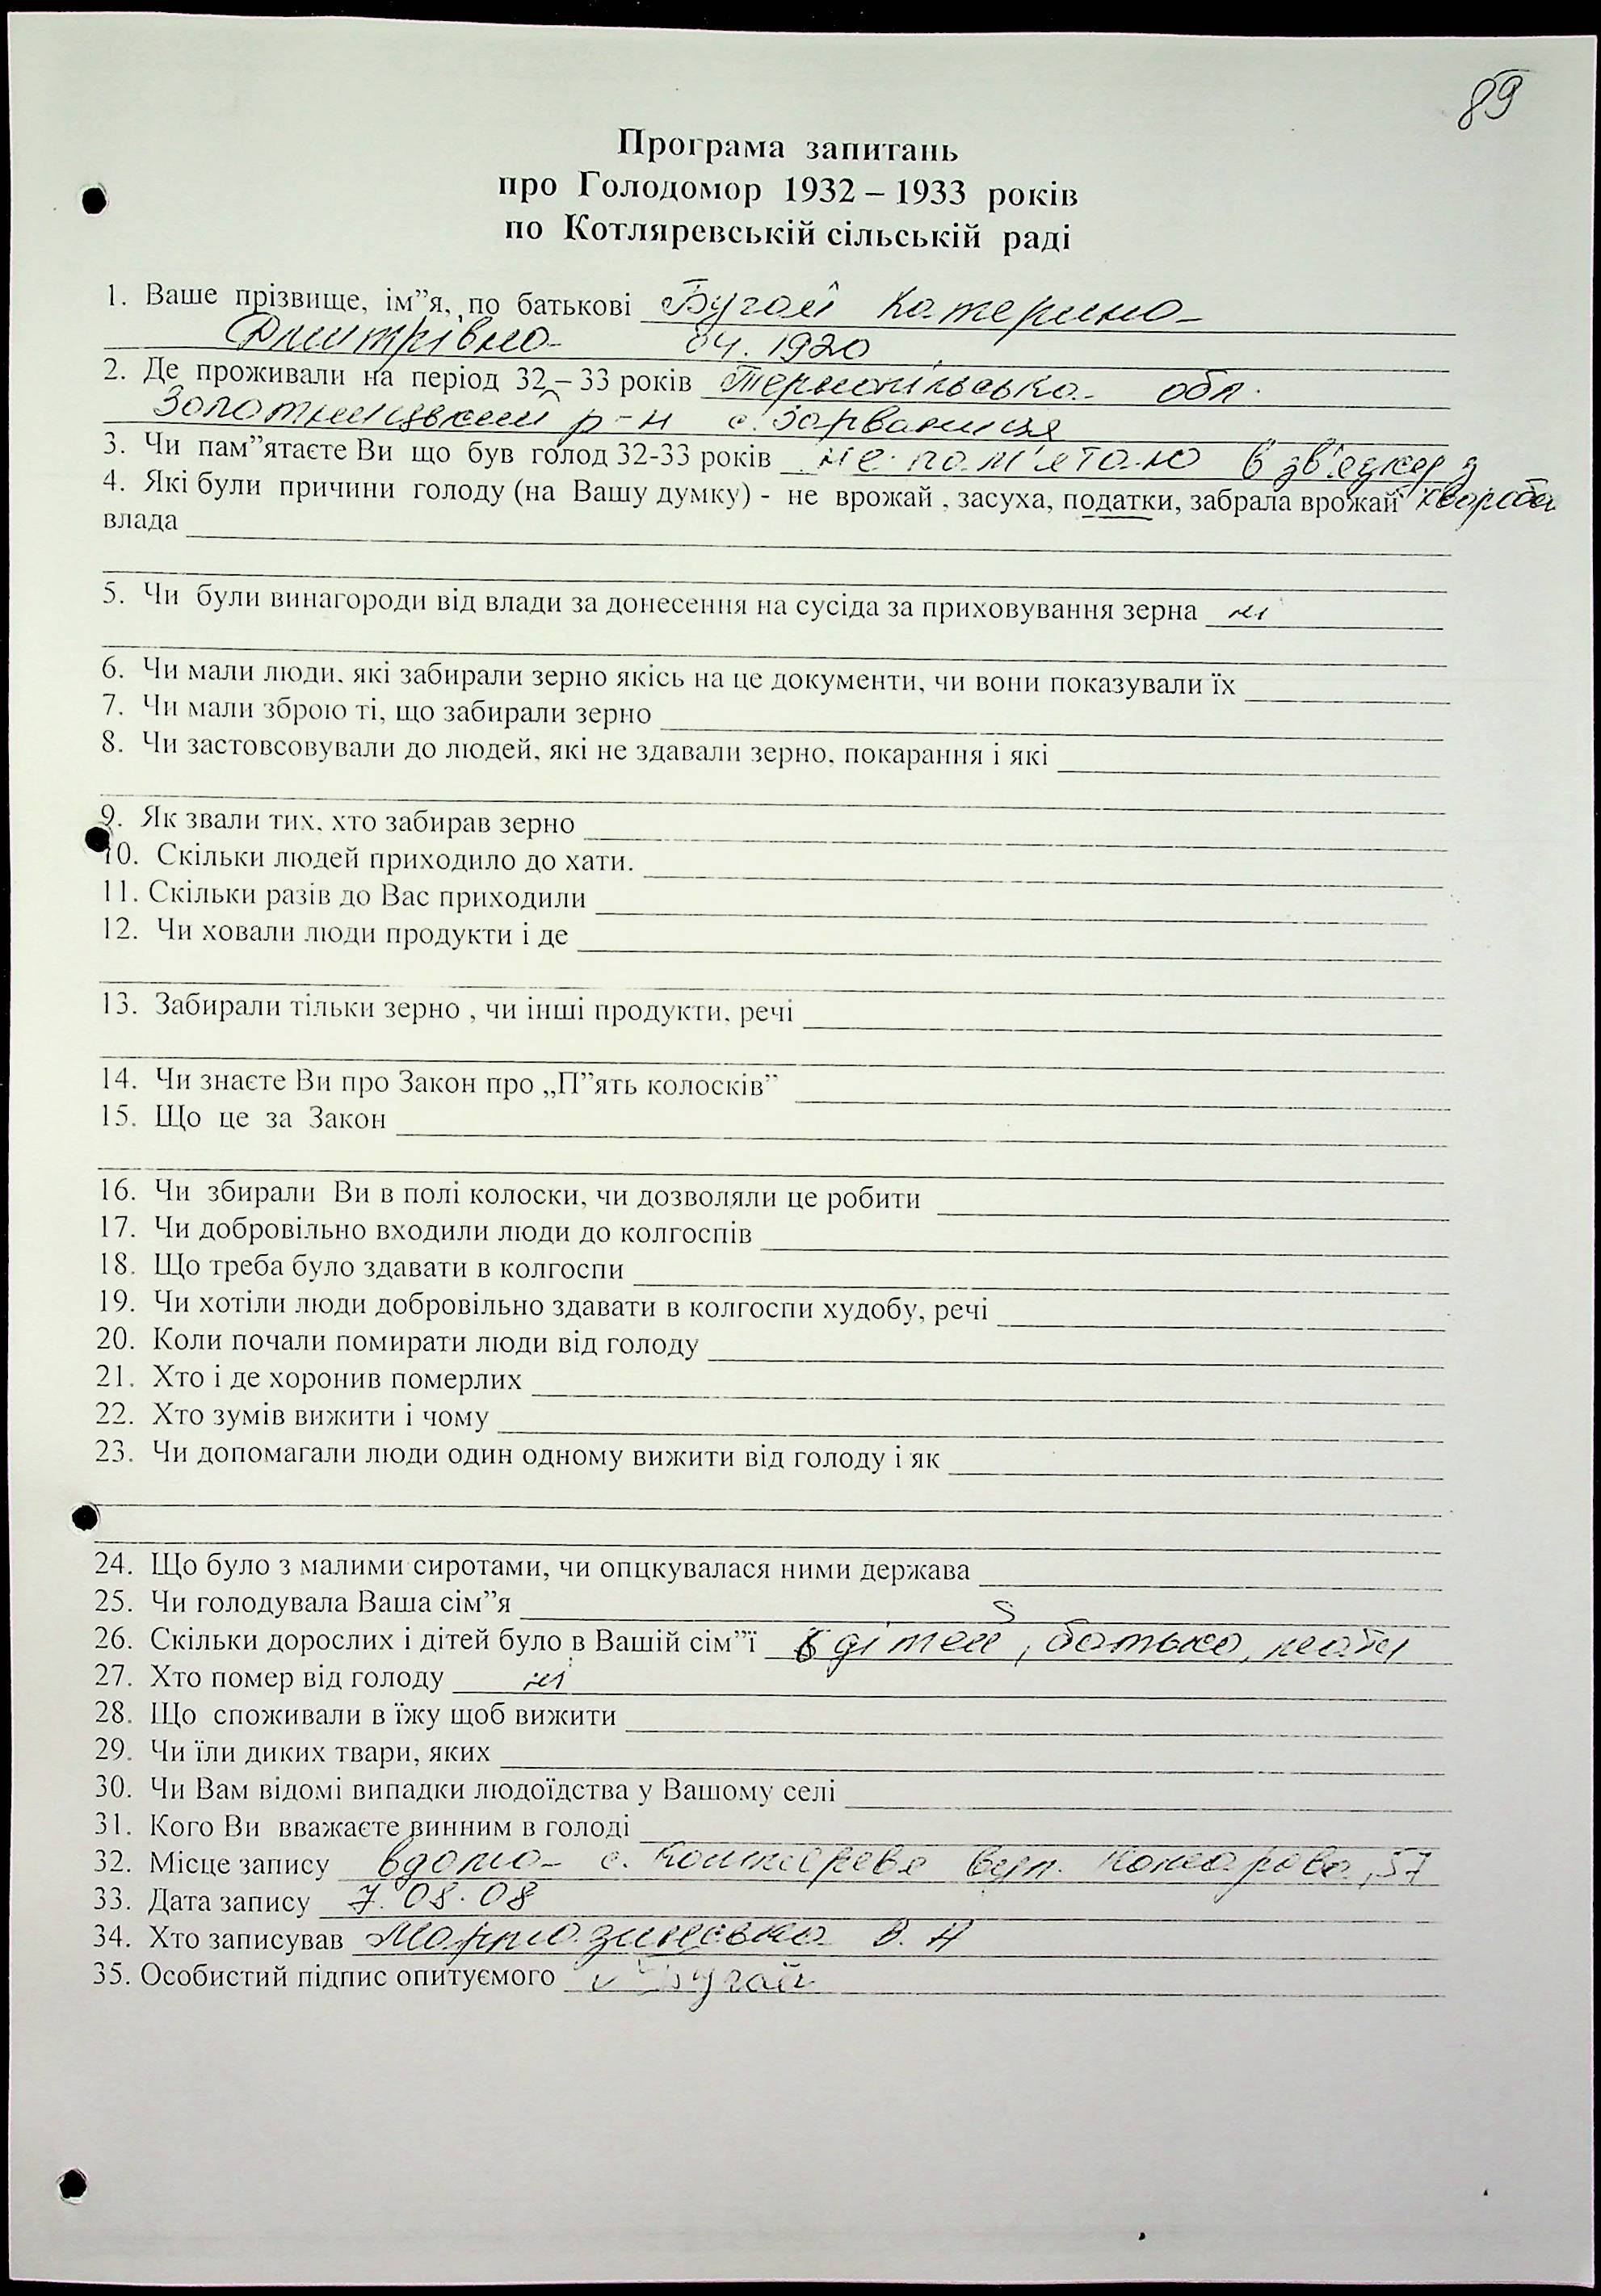 89
Програма запитань
про Голодомор 1932 – 1933 років
по Котляревській сільській раді
1. Ваше прізвище, ім”я, по батькові Бугай Катерина
Дмитрівна 04. 1920
2. Де проживали на період 32 – 33 років Тернопільська обл.
Золотницький р-н с. Зарваниця
3. Чи пам”ятаєте Ви що був голод 32-33 років не пам'ятаю в зв'язку з
4. Які були причини голоду (на Вашу думку) - не врожай , засуха, податки, забрала врожай хвороба
влада
5. Чи були винагороди від влади за донесення на сусіда за приховування зерна ні
6. Чи мали люди, які забирали зерно якісь на це документи, чи вони показували їх
7. Чи мали зброю ті, що забирали зерно
8. Чи застовсовували до людей, які не здавали зерно, покарання і які
9. Як звали тих, хто забирав зерно
10. Скільки людей приходило до хати.
11. Скільки разів до Вас приходили
12. Чи ховали люди продукти і де
13. Забирали тільки зерно , чи інші продукти, речі
14. Чи знаєте Ви про Закон про „П”ять колосків”
15. Що це за Закон
16. Чи збирали Ви в полі колоски, чи дозволяли це робити
17. Чи добровільно входили люди до колгоспів
18. Що треба було здавати в колгоспи
19. Чи хотіли люди добровільно здавати в колгоспи худобу, речі
20. Коли почали помирати люди від голоду
21. Хто і де хоронив померлих
22. Хто зумів вижити і чому
23. Чи допомагали люди один одному вижити від голоду і як
24. Що було з малими сиротами, чи опцкувалася ними держава
25. Чи голодувала Ваша сім”я
26. Скільки дорослих і дітей було в Вашій сім”ї дітей, батько, мати
27. Хто помер від голоду ні
28. Що споживали в їжу щоб вижити
29. Чи їли диких твари, яких
30. Чи Вам відомі випадки людоїдства у Вашому селі
31. Кого Ви вважаєте винним в голоді
32. Місце запису вдома с. вул. 57
33. Дата запису 7. 08. 08
34. Хто записував В. А
35. Особистий підпис опитуємого Бугай